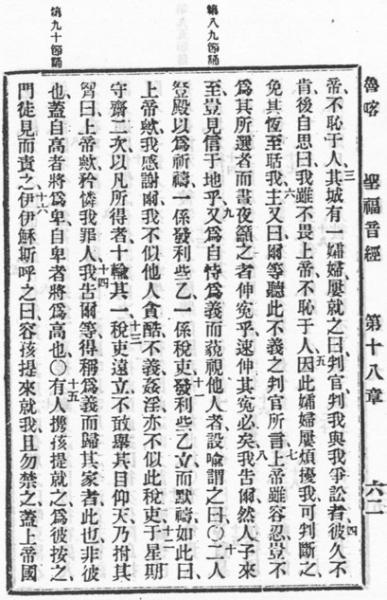 魯喀　聖福音經　第十八章　六二
第八九節誦
帝、不恥于人、三其城有一孀婦屢就之曰、判官判我與我爭訟者、四彼久不
肯、後自思曰、我雖不畏上帝、不恥于人、五因此孀婦屢煩擾我、可判斷之、
免其恆至聒我、六主又曰、爾等聽此不義之判官所言、七上帝雖容忍、豈不
為其所選者而晝夜籲之者伸冤乎、八速伸其冤必矣、我告爾、然人子來
至豈見信于地乎、九又為自恃為義而藐視他人者、設喻謂之曰、〇十二人
登殿以為祈禱、一係發利些乙、一係稅吏、十一發利些乙立而默禱如此曰、
上帝歟、我感謝爾、我不似他人貪酷不義姦淫、亦不似此稅吏、十二于星期
第九十節誦
守齋二次、以凡所得者十輸其一、十三稅吏遠立、不敢舉其目仰天、乃拊其
胷曰、上帝歟、矜憐我罪人、十四我告爾等、得稱為義而歸其家者此也、非彼
也、蓋自高者將為卑、自卑者將為高也、〇十五有人攜孩提就之、為彼按之、
門徒見而責之、十六伊伊穌斯呼之曰、容孩提來就我、且勿禁之、蓋上帝國